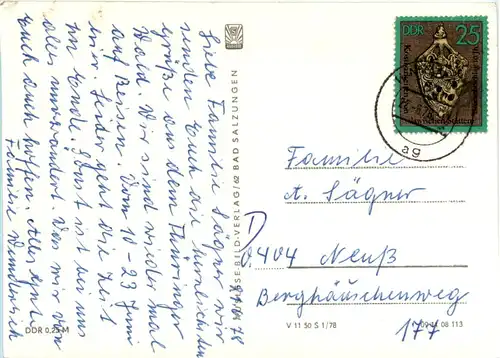 21.06.78
Liebe Familie Sägner wir
senden Euch die herzlichsten
Grüße aus dem Thüringer
Wald. Wir sind wieder mal
auf Reisen. Vom 10 - 23 Juni
hier. Leider geht die Zeit
zu Ende. Sonst ist bei uns
alles unverändert. Was wir von
Euch auch hoffen. Alles Gute
Familie
DDR 0,25 M
BILD-VERLAG/62 BAD SALZUNGEN
DDR 25
ag
Familie
A. Sägner
D
0404 Neuß
Berghäuschenweg
177
V 11 50 S 1/78
09 11 08 113